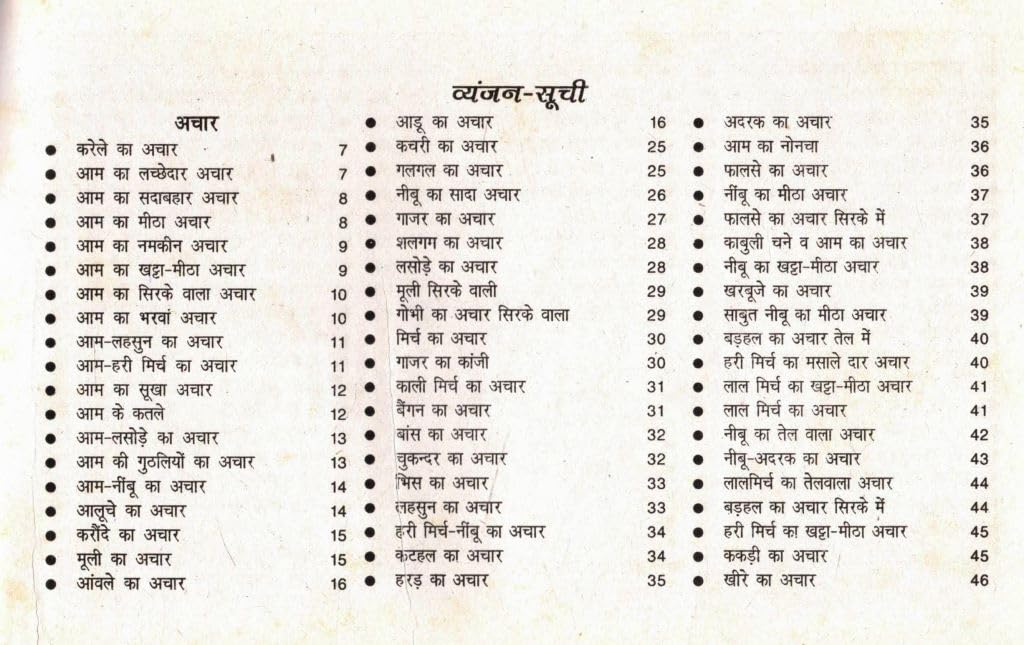 व्यंजन-सूची
अचार
● करेले का अचार 7
● आम का लच्छेदार अचार 7
● आम का सदाबहार अचार 8
● आम का मीठा अचार 8
● आम का नमकीन अचार 9
● आम का खट्टा-मीठा अचार 9
● आम का सिरके वाला अचार 10
● आम का भरवां अचार 10
● आम-लहसुन का अचार 11
● आम-हरी मिर्च का अचार 11
● आम का सूखा अचार 12
● आम के कतले 12
● आम-लसोड़े का अचार 13
● आम की गुठलियों का अचार 13
● आम-नींबू का अचार 14
● आलूचे का अचार 14
● करौंदे का अचार 15
● मूली का अचार 15
● आंवले का अचार 16
● आडू का अचार 16
● कचरी का अचार 25
● गलगल का अचार 25
● नीबू का सादा अचार 26
● गाजर का अचार 27
● शलगम का अचार 28
● लसोड़े का अचार 28
● मूली सिरके वाली 29
● गोभी का अचार सिरके वाला 29
● मिर्च का अचार 30
● गाजर का कांजी 30
● काली मिर्च का अचार 31
● बैंगन का अचार 31
● बांस का अचार 32
● चुकन्दर का अचार 32
● भिस का अचार 33
● लहसुन का अचार 33
● हरी मिर्च-नींबू का अचार 34
● कटहल का अचार 34
● हरड़ का अचार 35
● अदरक का अचार 35
● आम का नोनचा 36
● फालसे का अचार 36
● नींबू का मीठा अचार 37
● फालसे का अचार सिरके में 37
● काबुली चने व आम का अचार 38
● नीबू का खट्टा-मीठा अचार 38
● खरबूजे का अचार 39
● साबुत नीबू का मीठा अचार 39
● बड़हल का अचार तेल में 40
● हरी मिर्च का मसाले दार अचार 40
● लाल मिर्च का खट्टा-मीठा अचार 41
● लाल मिर्च का अचार 41
● नीबू का तेल वाला अचार 42
● नीबू-अदरक का अचार 43
● लालमिर्च का तेलवाला अचार 44
● बड़हल का अचार सिरके में 44
● हरी मिर्च का खट्टा-मीठा अचार 45
● ककड़ी का अचार 45
● खीरे का अचार 46